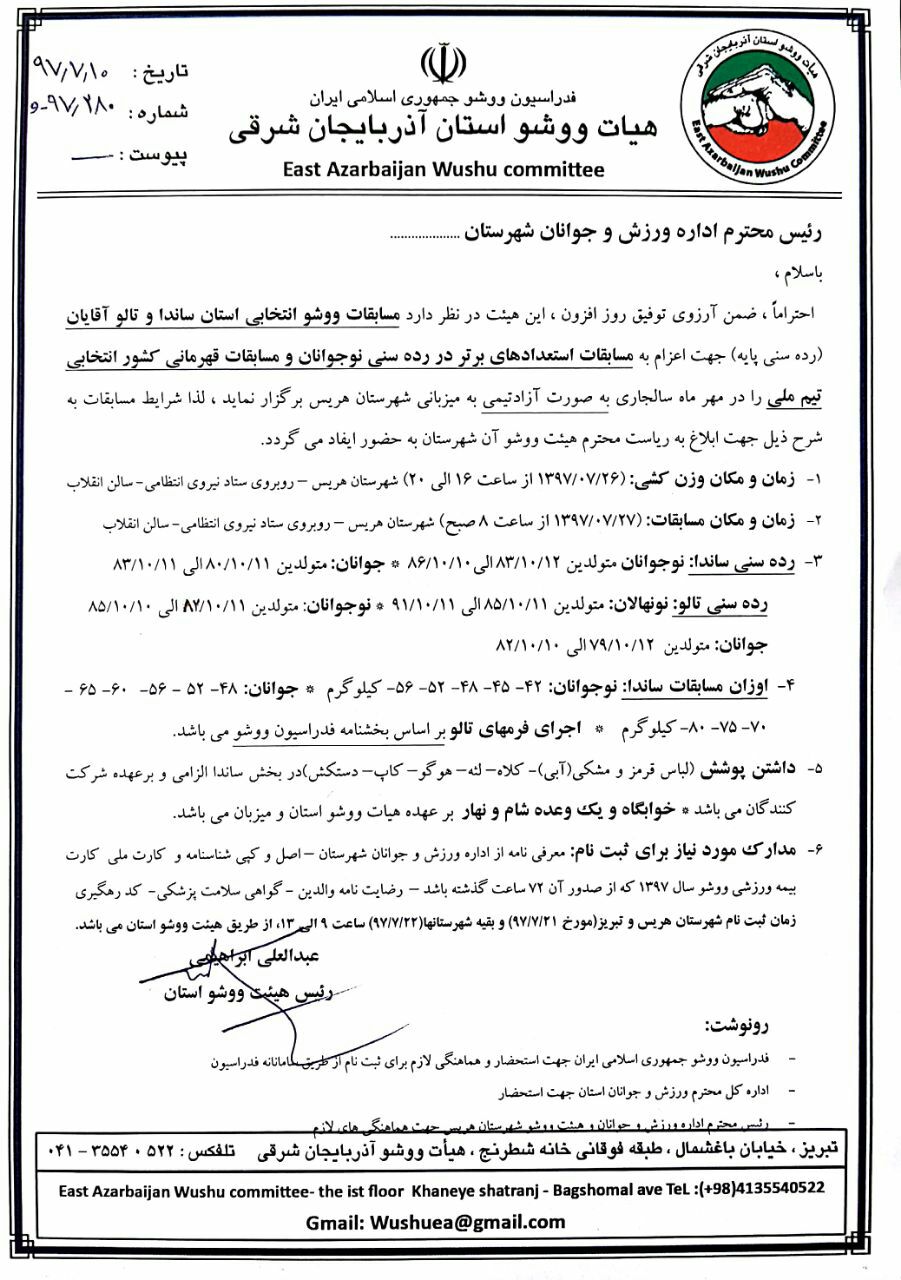 هیأت ووشو استان آذربایجان شرقی
East Azarbaijan Wushu Committee
فدراسیون ووشو جمهوری اسلامی ایران
هیات ووشو استان آذربایجان شرقی
East Azarbaijan Wushu committee
تاریخ : ۹۷,۷,۱۰
شماره: ۹۷,۲۸۰-و
پیوست : —
رئیس محترم اداره ورزش و جوانان شهرستان ....................
باسلام ،
احتراماً ، ضمن آرزوی توفیق روز افزون ، این هیئت در نظر دارد مسابقات ووشو انتخابی استان ساندا و تالو آقایان
(رده سنی پایه) جهت اعزام به مسابقات استعدادهای برتر در رده سنی نوجوانان و مسابقات قهرمانی کشور انتخابی
تیم ملی را در مهر ماه سالجاری به صورت آزادتیمی به میزبانی شهرستان هریس برگزار نماید ، لذا شرایط مسابقات به
شرح ذیل جهت ابلاغ به ریاست محترم هیئت ووشو آن شهرستان به حضور ایفاد می گردد.
۱- زمان و مکان وزن کشی: (۱۳۹۷/۰۷/۲۶ از ساعت ۱۶ الی ۲۰) شهرستان هریس – روبروی ستاد نیروی انتظامی- سالن انقلاب
۲- زمان و مکان مسابقات: (۱۳۹۷/۰۷/۲۷ از ساعت ۸ صبح) شهرستان هریس – روبروی ستاد نیروی انتظامی- سالن انقلاب
۳- رده سنی ساندا: نوجوانان متولدین ۸۳/۱۰/۱۲ الی ۸۶/۱۰/۱۰ * جوانان: متولدین ۸۰/۱۰/۱۱ الی ۸۳/۱۰/۱۱
رده سنی تالو: نونهالان: متولدین ۸۵/۱۰/۱۱ الی ۹۱/۱۰/۱۱ * نوجوانان: متولدین ۸۲/۱۰/۱۱ الی ۸۵/۱۰/۱۰
جوانان: متولدین ۷۹/۱۰/۱۲ الی ۸۲/۱۰/۱۰
۴- اوزان مسابقات ساندا: نوجوانان: ۴۲- ۴۵- ۴۸- ۵۲- ۵۶- کیلوگرم * جوانان: ۴۸- ۵۲ - ۵۶- ۶۰- ۶۵ -
۷۰- ۷۵- ۸۰- کیلوگرم * اجرای فرمهای تالو بر اساس بخشنامه فدراسیون ووشو می باشد.
۵- داشتن پوشش (لباس قرمز و مشکی(آبی)- کلاه- لثه- هوگو- کاپ- دستکش)در بخش ساندا الزامی و برعهده شرکت
کنندگان می باشد * خوابگاه و یک وعده شام و نهار بر عهده هیات ووشو استان و میزبان می باشد.
۶- مدارک مورد نیاز برای ثبت نام: معرفی نامه از اداره ورزش و جوانان شهرستان –اصل و کپی شناسنامه و کارت ملی کارت
بیمه ورزشی ووشو سال ۱۳۹۷ که از صدور آن ۷۲ ساعت گذشته باشد – رضایت نامه والدین - گواهی سلامت پزشکی- کد رهگیری
زمان ثبت نام شهرستان هریس و تبریز(مورخ ۹۷/۷/۲۱) و بقیه شهرستانها(۹۷/۷/۲۲) ساعت ۹ الی ۱۳، از طریق هیئت ووشو استان می باشد.
عبدالعلی ابراهیمی
رئیس هیئت ووشو استان
رونوشت:
- فدراسیون ووشو جمهوری اسلامی ایران جهت استحضار و هماهنگی لازم برای ثبت نام از طریق سامانانه فدراسیون
- اداره کل محترم ورزش و جوانان استان جهت استحضار
- رئیس محترم اداره ورزش و جوانان و هیئت ووشو شهرستان هریس جهت هماهنگی های لازم
تبریز ، خیابان باغشمال ، طبقه فوقانی خانه شطرنج ، هیأت ووشو آذربایجان شرقی تلفکس : ۰۴۱ - ۳۵۵۴۰۵۲۲
East Azarbaijan Wushu committee- the ist floor Khaneye shatranj - Bagshomal ave TeL :(+98)4135540522
Gmail: Wushuea@gmail.com